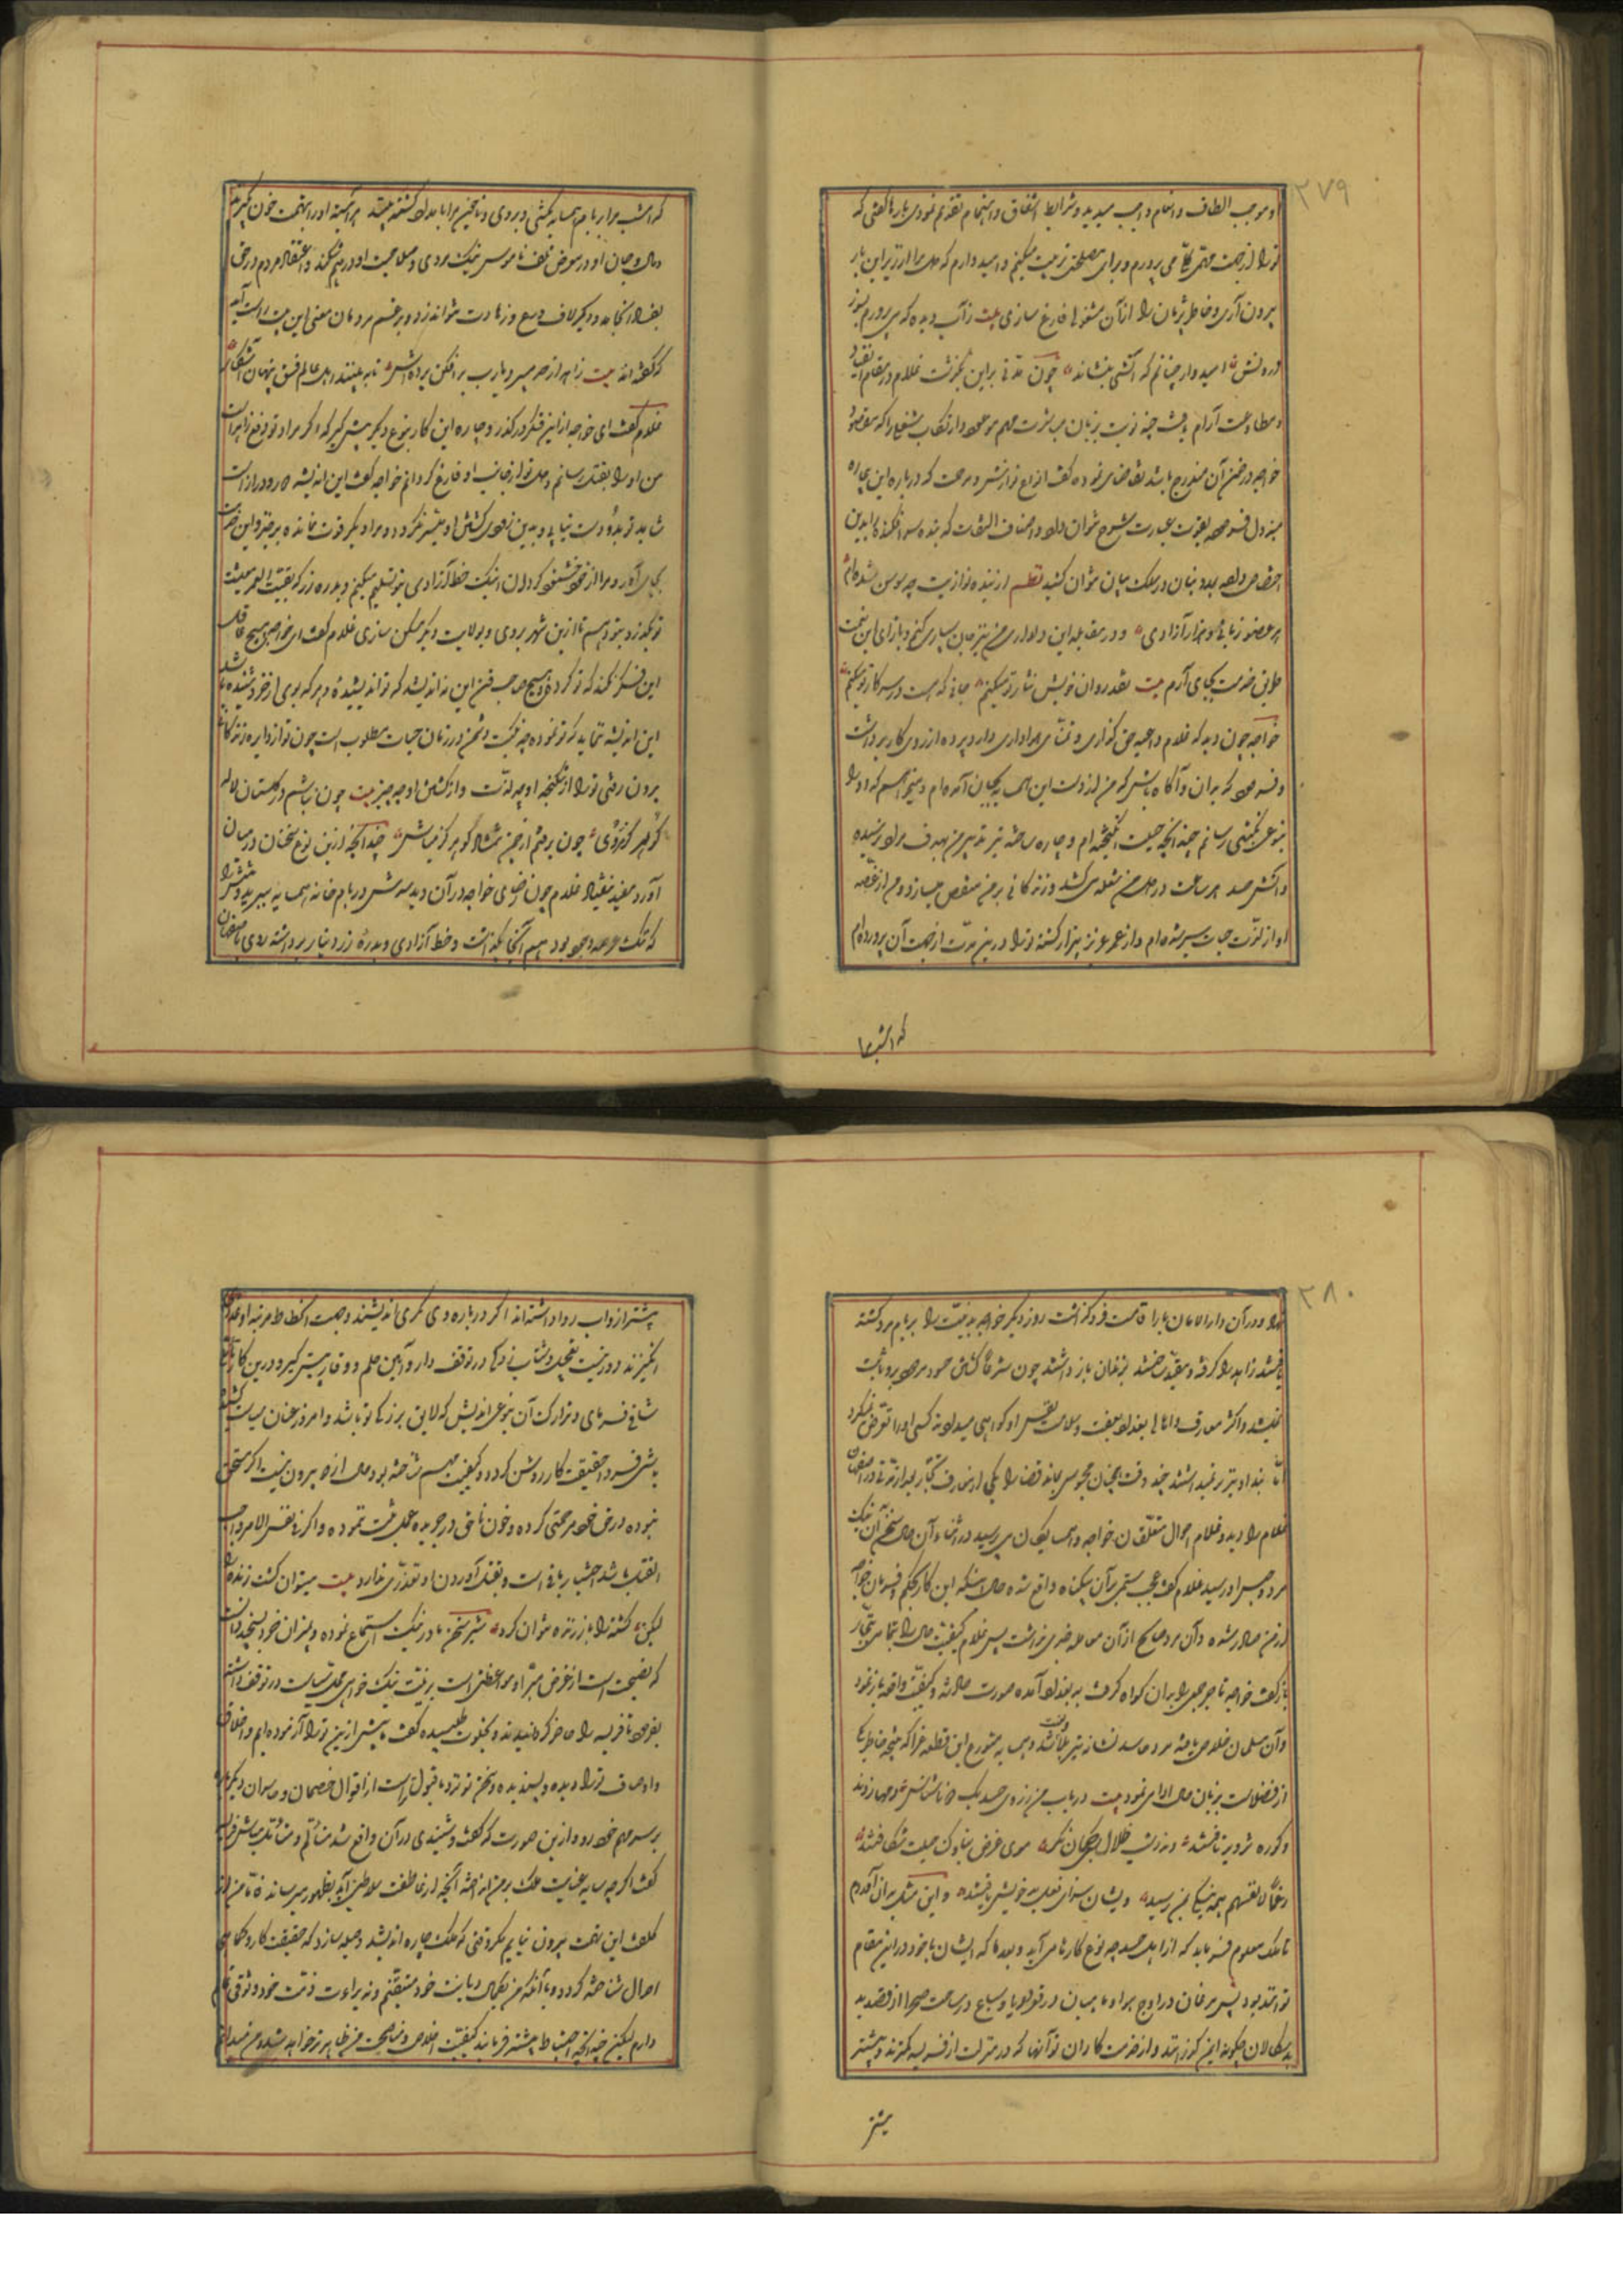 ۲۷۹
او موجب الطاف و انعام واجب میدید و شرایط اشفاق و اهتمام تقدیم نمودی بارها گفتی که
ترا از جهت مهمی کلی می پرورم و برای مصلحتی تربیت میکنم و امید دارم که دل مرا از زیر این بار
بیرون آری و خاطر پژمان را از آن مشغولها فارغ سازی بیت ز آب دیده که می پرورم بسوز
درونش امیدوار چنانم که آتشی بنشاند چون مدتی براین بگذشت غلام در مقام انقیاد
و مطاوعت آرام یافت چند نوبت بزبان
خواجه در ضمن آن مندرج باشد تقاضای نموده گفت انواع نوازش و مرحمت که درباره این بیچاره
مبذول فرموده بقوت عبارت شرح نتوان داد و اصناف التفات که بنده سرافکنده را بدین
اختصاص داده بمدد بنان در سلک بیان نتوان کشید نظم از بنده نوازیت چو سوسن شده‌ام
هر عضو زبانی و هزار آزادی و در مقابله این دلداری من نیز جان سپاری کنم و بازای این نعمت
طریق خدمت بجای آرم بیت نقد روان خویش نثار تو میکنم جانی که هست در سر کار تو میکنم
خواجه چون دید که غلام داعیه حق گذاری و تمنای هواداری دارد پرده از روی کار برداشت
و فرمود که بدان و آگاه باش که من از دست این همسایه بجان آمده‌ام و میخواهم که او را
بنوعی نکبتی رسانم چندانچه حیلت انگیخته ام و چاره ساخته تیر تدبیر من بهدف مراد نرسیده
و آتش حسد هر ساعت در دل من شعله می کشد و زندگانی بر من منغص میسازد و من از غصه
او از لذت حیات سیر شده ام و از عمر عزیز بیزار گشته ترا در این مدت از جهت آن پرورده‌ام
که امشب مرا
که امشب مرا بر بام همسایه بکشی و بروی و تا چنین مرا بامداد کشته بینند هر آینه او را بتهمت خون بگیرند
و مال و جان او در معرض تلف ناموس نیک مردی و صلاحیت او در هم شکند و اعتقاد مردم در حق
بفساد انجامد و دیگر لاف ورع و زهادت نتواند زد و بر غم مردمان معنی این بیت راست آید
که گفته اند بیت زاهد از حد میبرد یارب برافکن پرده اش تا ببینند اهل عالم فسق پنهان آشکار
غلام گفت ای خواجه از این فکر درگذر و چاره این کار بنوع دیگر پیش گیر که اگر مراد تو دفع زاهد است
من او را بقتل رسانم و دل ترا از جانب او فارغ گردانم خواجه گفت این اندیشه دور و دراز است
شاید تو برو دست نیابی و بدین زودی کشتن او میسر نگردد و مرا دیگر قوت نمانده برخیز و این خدمت
بجای آور و مرا از خود خشنود گردان اینک خط آزادی بتو تسلیم میکنم و بدره زر که بقیت العمر معیشت
تو بگذرد بتو دهم تا از این شهر بروی و بولایت دیگر مسکن سازی غلام گفت ای خواجه هیچ عاقل
این فکر نکند که تو کردی و هیچ صاحب فن این نه اندیشد که تو اندیشیده و هر که بوی از خرد شنیده باشد
این اندیشه ننماید که تو نموده چه نکبت دشمن در زمان حیات مطلوب است چون تو از دایره زندگانی
بیرون رفتی ترا از شکنجه او چه لذت و از کشتن او چه چیز بیت چون نباشم در گلستان لاله
گو هرگز مروی چون برفتم از چمن شمشاد گو هرگز مباش چندانچه از این نوع سخنان در میان
آورد مفید نیفتاد غلام چون رضای خواجه در آن دید سرش در بام خانه همسایه ببرید و تنش را
که ننگ عرصه وجود بود هم آنجا بگذاشت و خط آزادی و بدره زر و دینار برداشته روی باصفهان
۲۸۰
نهاد و در آن دار الامان بار اقامت فرو گذاشت روز دیگر خواجه بدنیت را بر بام مرد کشته
یافتند زاهد را گرفته و مقید ساخته بزندان باز داشتند چون شرعا کشتن حسود بر وی ثابت
نمیشد و اکثر معارف و اهالی بغداد بعفت و سلامت نفس او گواهی میدادند کسی او را تعرض نمیکرد
اما بند او نیز بر نمیداشتند چند وقت همچنان محبوس بماند قضا را یکی از معارف تجار بعد از مدتی در اصفهان
غلام را دید و غلام احوال متعلقان خواجه و همسایگان می پرسید در اثناء آن حال سخن آن نیک
مرد و حبس او رسید غلام گفت عجب ستمی بر آن بیگناه واقع شده حال آنکه این کار بحکم و فرمان خواجه
از من صادر شده و آن مرد صالح از آن معامله خبری نداشت پس غلام کیفیت حال را بتمامی بتجار
باز گفت خواجه تاجر جمعی را بر آن گواه گرفت به بغداد آمده صورت حادثه و کیفیت واقعه باز نمود
و آن مسلمان خلاصی یافته مرد حاسد نشانه تیر بلا گشت و همسایه متورع این قطعه غرا که نتیجه خاطر یکی
از فضلاست بزبان حال ادا می نمود بیت در باب من ز روی حسد یک دو ناشناس دمها زدند
و کوره تزویر تافتند
رخنان نفسهم همه نیکی بمن رسید ویشان سزای فعل بد خویش یافتند و این مثل بدان آوردم
تا ملک معلوم فرماید که از اهل حسد چه نوع کارها می آید و بعد ما که ایشان با خود در این مقام
توانند بود پس مرغان در اوج هوا و ماهیان در قعر دریا و سباع در ساحت صحرا از قصد بد
بد سگالان چگونه ایمن توانند و از خدمت کاران تو آنها که در منزلت از فریسه کمترند و بیشتر
بیشتر
پیشتر از و اب روا داشته اند اگر درباره وی مکری اندیشند و جهت انحطاط مرتبه او عذری
انگیزند دور نیست تعجیل و شتاب زدگی در توقف دار و آیین حلم و وقار پیش گیر و در این کار تأمل
شافی فرمای و تدارک آن بنوعی اندیش که لایق بزرگی تو باشد و امروز عنان سیاست کشیده
باشی فردا حقیقت کار روشن گردد و کیفیت مهم شناخته بود حال از دو بیرون نیست اگر مستحق
نبوده در حق خود مرحمتی کرده و خون ناحق در جریده عمل ثبت ننموده و اگر فی نفس الامر واجب
القتل باشد اختیار باقی است و بقتل آوردن او تعذری ندارد بیت میتوان کشت زنده را
لیکن کشته را باز زنده نتوان کرد شیر سخن مادر نیک استماع نموده و بمیزان خرد بسنجید و دانست
که نصیحت است از غرض مبرا و موعظتی است بزینت نیک خواهی محلی سیاست در توقف داشته
بفرمود تا فریسه را حاضر گردانیدند و بخلوت طلبیده گفت ما پیش از این ترا آزموده ایم و اخلاق
و اوصاف ترا دیده و پسندیده و سخن تو نزد ما قبولتر است از اقوال خصمان و حاسدان دیگر باره
بر سر مهم خود رو و از این صورت که گفت و شنیدی در آن واقع شد متألم و متأثر مباش فریسه
گفت اگر چه سایه عنایت ملک بر من انداخته آنچه از عاطفت سلاطین آید بظهور میرساند فاما من از
کلفت این تهمت بیرون نیایم مگر وقتی که ملک چاره اندیشد و حیله سازد که حقیقت کار و کماهی
احوال شناخته گردد و با آنکه من بکمال دیانت خود متیقنم و به براءت ذمت خود وثوقی تمام
دارم لیکن چندانچه احتیاط بیشتر فرمایند کیفیت اخلاص و مناصحت من ظاهر تر خواهد شد و من میدانم